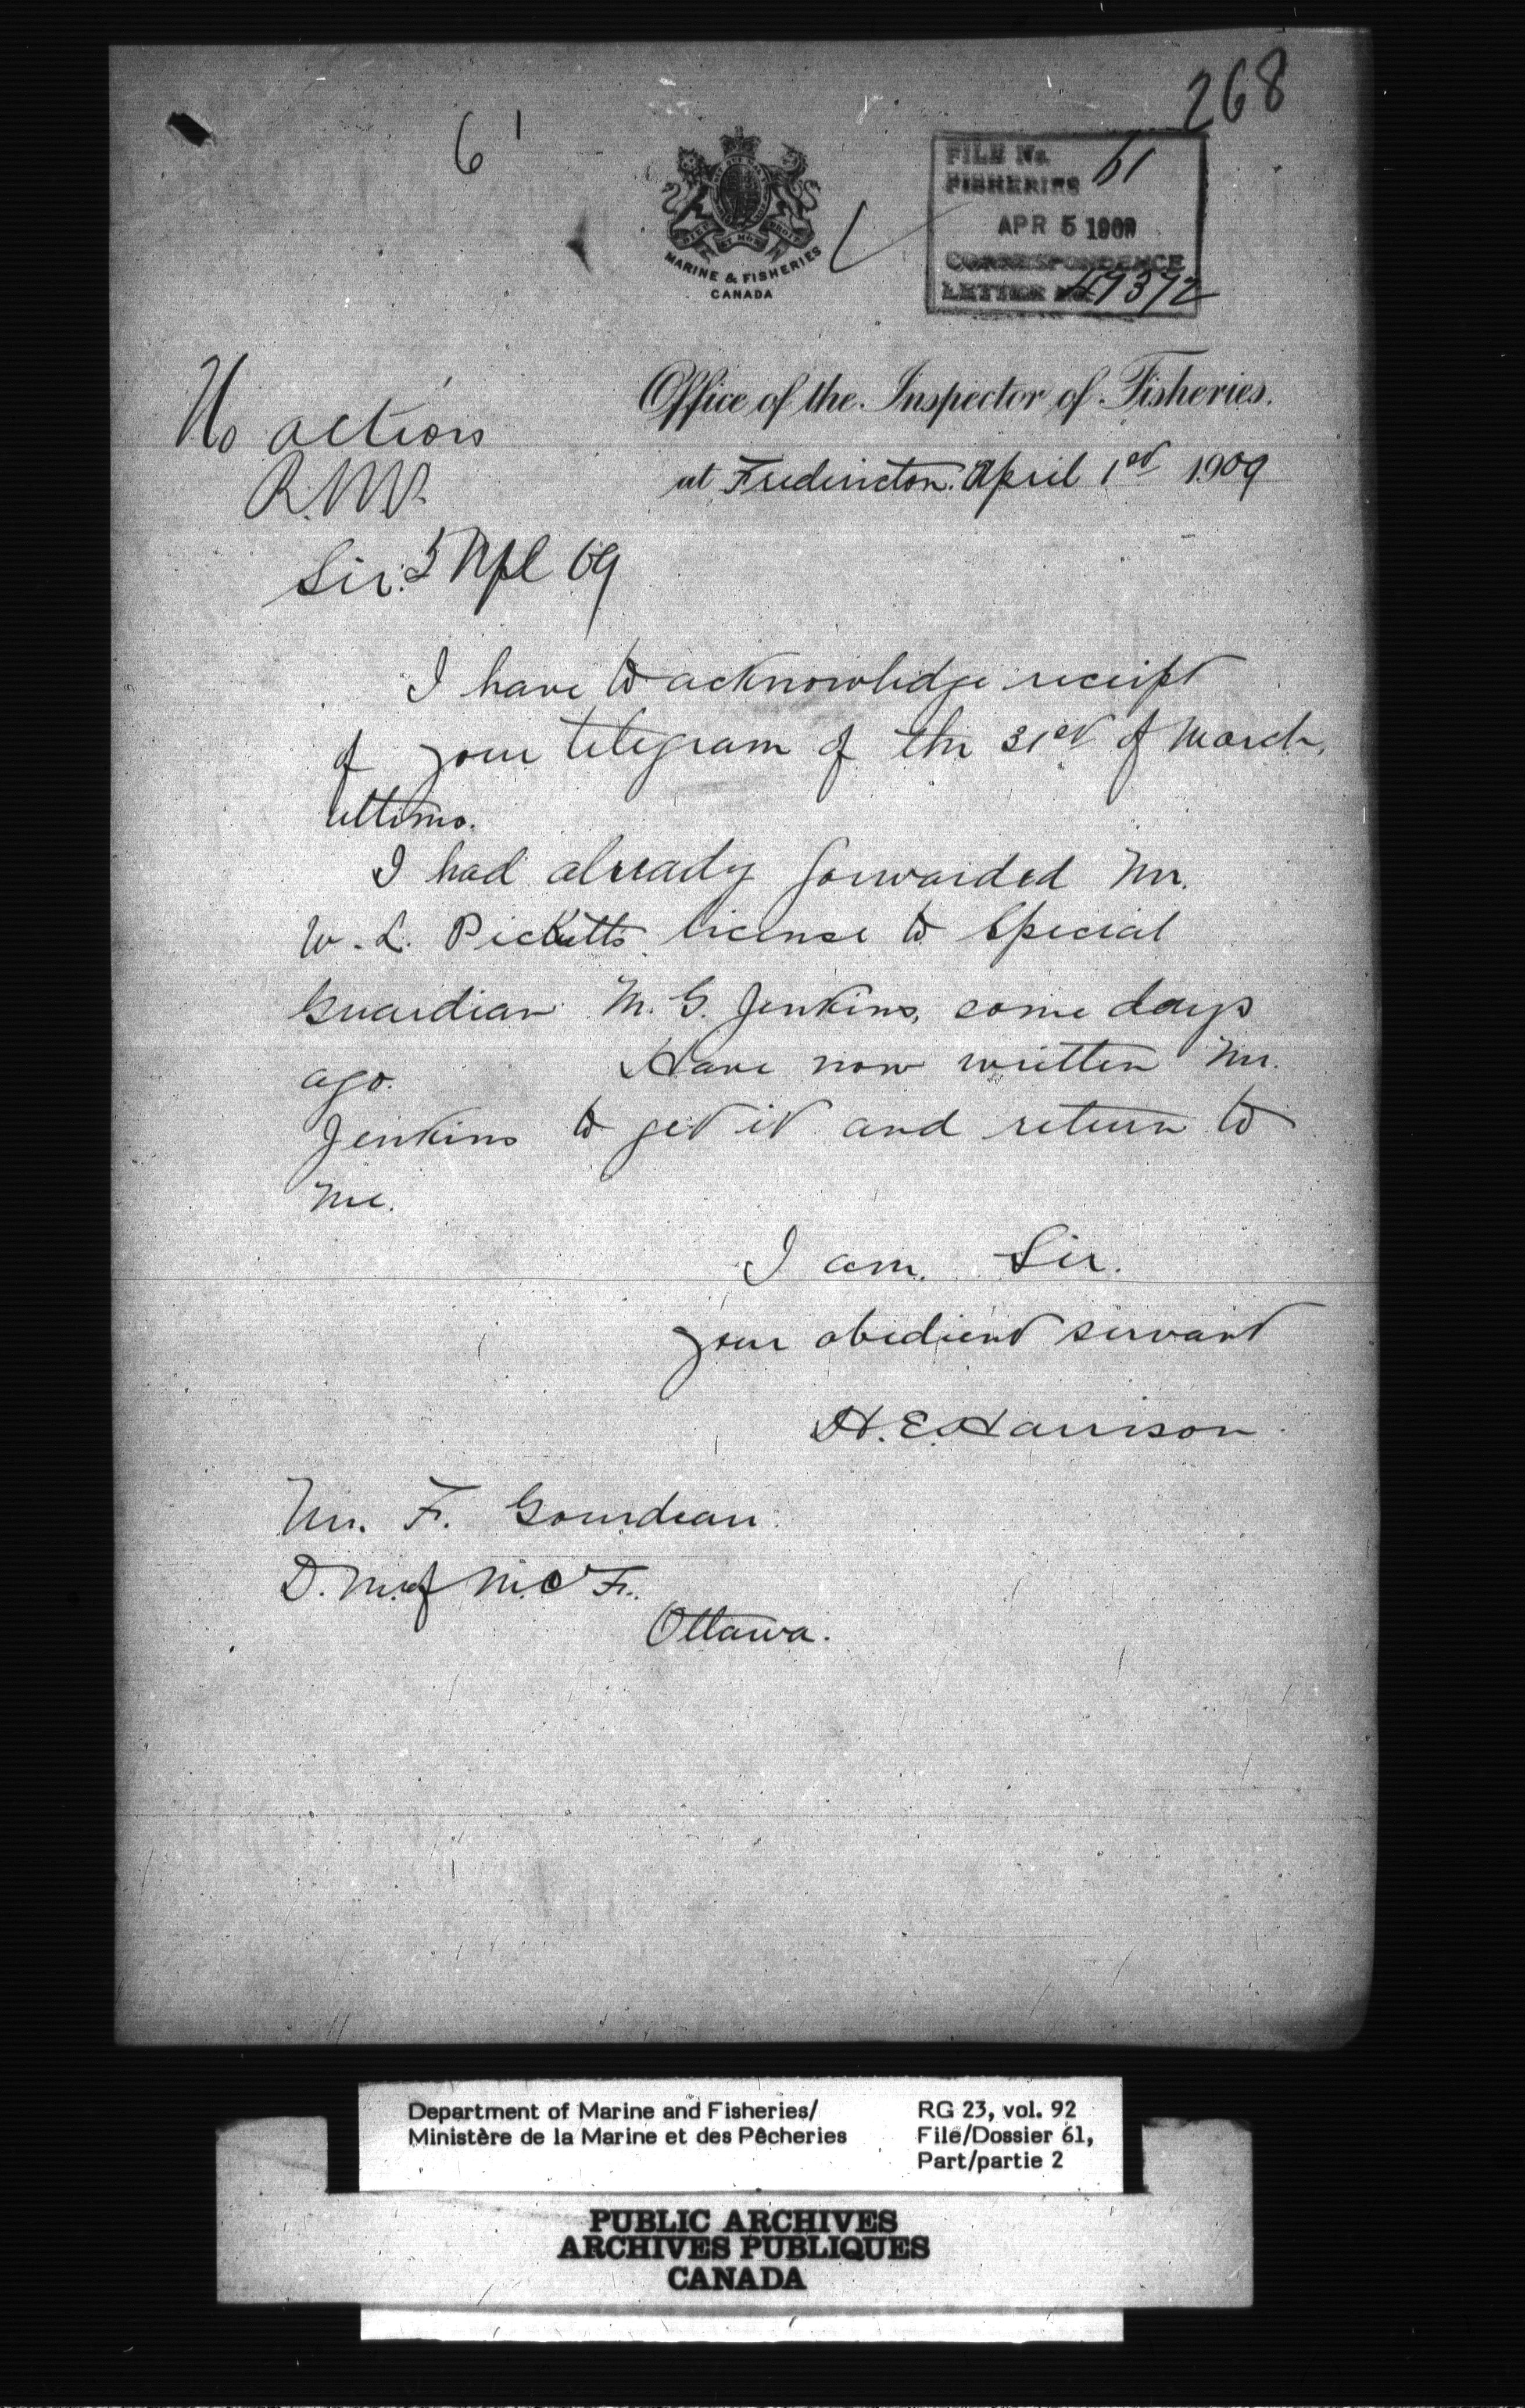 268
61
FILE No.
FISHERIES 61
APR 5 1909
CORRESPONDENCE
LETTER No. 49392
MARINE & FISHERIES
CANADA
Office of the Inspector of Fisheries.
at Fredericton. April 1st 1909
No action
5 Apl 09
Sir.
I have to acknowledge receipt
of your telegram of the 31st of March,
ultimo.
I had already forwarded Mr.
W. L. Picketts license to Special
Guardian M. G. Jenkins, some days
ago. Have now written Mr.
Jenkins to get it and return to
me.
I am. Sir.
your obedient servant
H. E. Harrison
Mr. F. Gourdeau
D. M. of M. & F.
Ottawa.
Department of Marine and Fisheries/
Ministère de la Marine et des Pêcheries
RG 23, vol. 92
File/Dossier 61,
Part/partie 2
PUBLIC ARCHIVES
ARCHIVES PUBLIQUES
CANADA